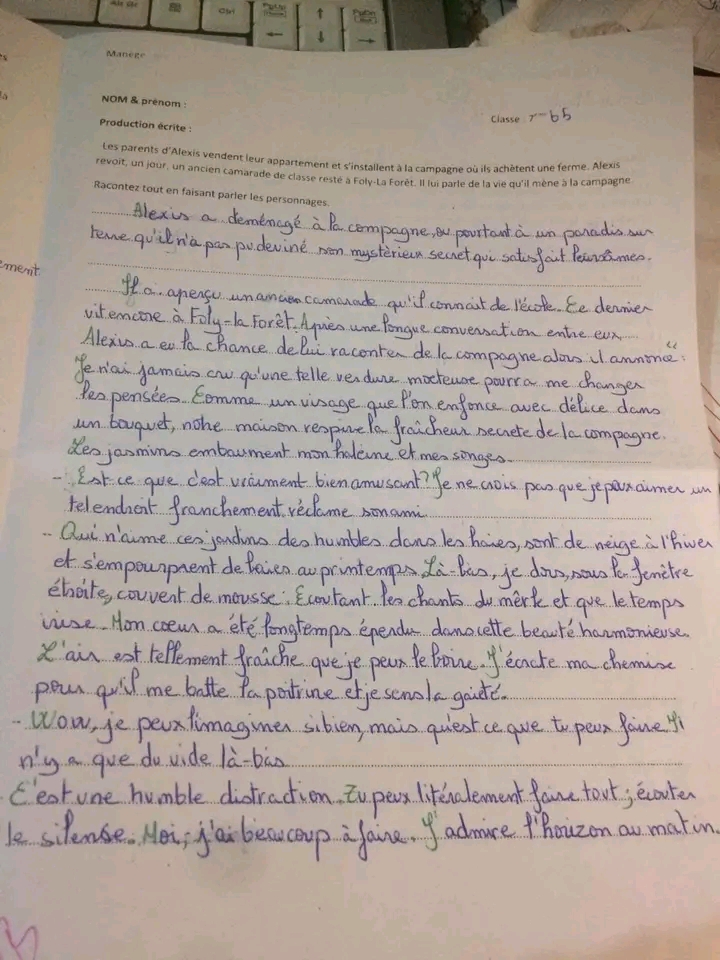 Manège
NOM & prénom :
Classe : 7-b5
Production écrite :
Les parents d'Alexis vendent leur appartement et s'installent à la campagne où ils achètent une ferme. Alexis
revoit, un jour, un ancien camarade de classe resté à Foly-La Forêt. Il lui parle de la vie qu'il mène à la campagne
Racontez tout en faisant parler les personnages.
Alexis a deménagé à la compagne, ou pourtant à un paradis sur
terre qu'il n'a pas pu deviné son mystèrieux secret qui satisfait leurs âmes.
Il a aperçu un ancien camarade qu'il connait de l'école. Ce dernier
vit encore à Foly-la Forêt. Après une longue conversation entre eux
Alexis a eu la chance de lui raconter de la compagne alors il annonce : "
Je n'ai jamais cru qu'une telle verdure moteuse pourra me changer
les pensées. Comme un visage que l'on enfonce avec délice dans
un bouquet, notre maison respire la fraîcheur secrete de la compagne.
Les jasmins embaument mon haleine et mes songes.
- Est ce que c'est vraiment bien amusant? Je ne crois pas que je peux aimer un
tel endroit franchement, réclame son ami
- Qui n'aime ces jardins des humbles dans les haies, sont de neige à l'hiver
et s'empourprent de baies au printemps. Là-bas, je dors, sous la fenêtre
étroite, couvent de mousse. Ecoutant les chants du mêrle et que le temps
irise. Mon coeur a été longtemps éperdu dans cette beauté harmonieuse.
L'air est tellement fraîche que je peux le boire. J'écrate ma chemise
pour qu'il me batte la poitrine et je sens la gaieté.
- Wow, je peux l'imaginer si bien, mais qu'est ce que tu peux faire. Il
n'y a que du vide là-bas
C'est une humble distraction. Tu peux litéralement faire tout ; écouter
le silense. Moi, j'ai beaucoup à faire. J'admire l'horizon au matin.
ement